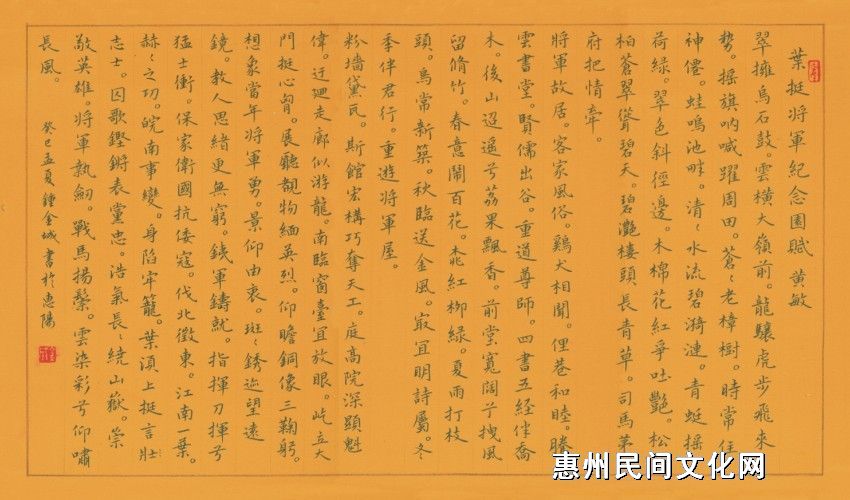 葉挺將軍紀念園賦 黄敏
翠擁烏石鼓。雲橫大嶺前。龍驤虎步飛來
勢。摇旗吶喊躍周田。蒼々老樟樹。時常住
神僊。蛙鳴池畔。清々水流碧漪漣。青蜓摇
荷緑。翠色斜徑邊。木棉花紅爭吐艷。松
柏蒼翠聳碧天。碧灩樓頭長青草。司馬第
府把情牽。
將軍故居。客家風俗。鷄犬相聞。俚巷和睦。騰
雲書堂。賢儒出谷。重道尊師。四書五經伴喬
木。後山迢遥兮荔果飄香。前堂寬闊兮拽風
留脩竹。春意鬧百花。桃紅柳緑。夏雨打枝
頭。鳥常新築。秋臨送金風。冣宜明詩屬。冬
季伴君行。重遊將軍屋。
粉墻黛瓦。斯館宏構巧奪天工。庭高院深顯魁
偉。迂迴走廊似游龍。南臨窗臺宜放眼。屹立大
門挺心胷。展廳靚物緬英烈。仰瞻銅像三鞠躬。
想象當年將軍勇。景仰由衷。斑々銹迹望遠
鏡。教人思緒更無窮。鐵軍鑄就。指揮刀揮兮
猛士衝。保家衛國抗倭寇。伐北徵東。江南一葉。
赫々之功。皖南事變。身陷牢籠。葉湏上挺言壯
志士。囚歌鏗鏘表黨忠。浩氣長々繞山嶽。崇
敬英雄。將軍執劒。戰馬揚鬃。雲染彩兮仰嘯
長風。
癸巳孟夏鍾金城書於惠陽
惠州民间文化网